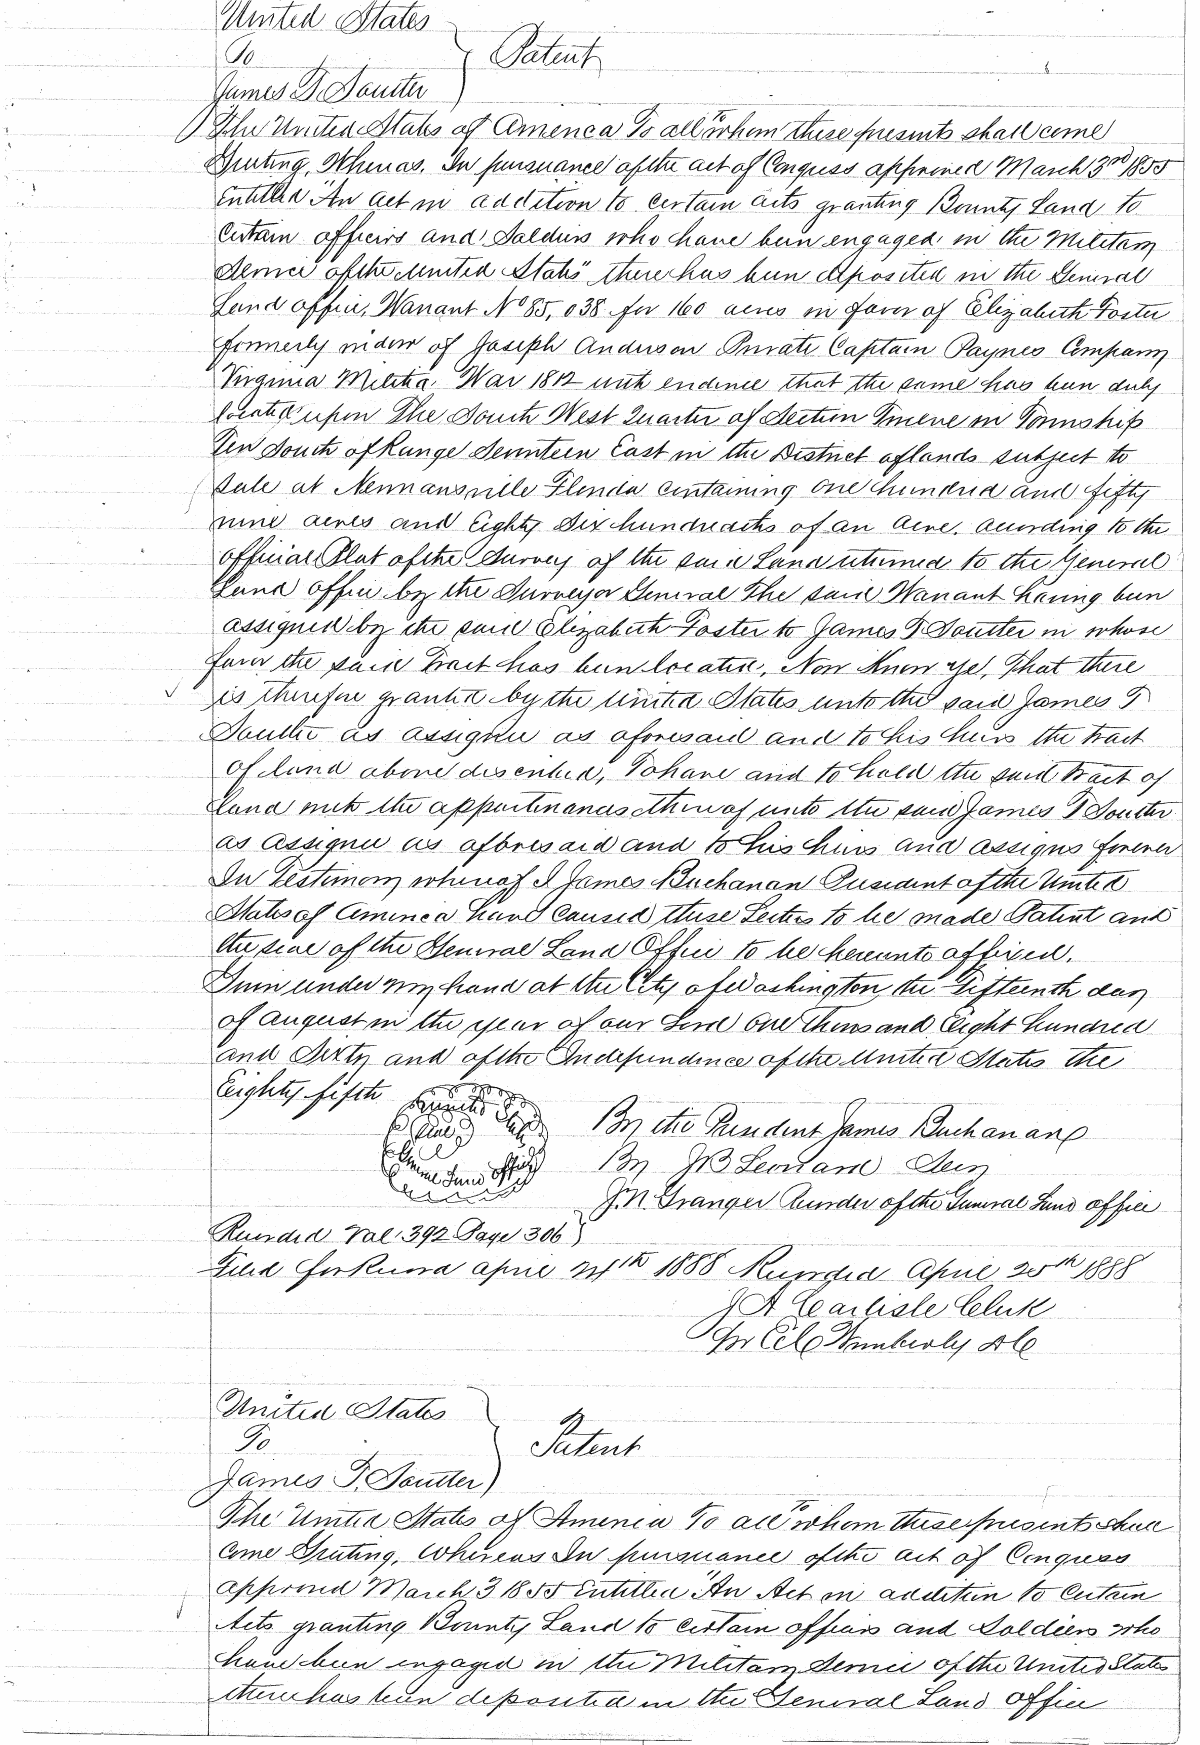 United States
To
Patent
James T. Soutter
The United States of America To all "To whom these presents shall come
Greeting, Whereas, In pursuance of the act of Congress approved March 3rd 1855
entitled "An act in addition to certain acts granting Bounty Land to
certain officers and Soldiers who have been engaged in the Military
Service of the United States" there has been deposited in the General
Land office, Warrant No 85,038 for 160 acres in favor of Elizabeth Foster
formerly widow of Joseph Anderson Private Captain Paynes Company
Virginia Militia War 1812 with evidence that the same has been duly
located upon The South West Quarter of Section in Township
Ten South of Range Seventeen East in the District of lands subject to
sale at Newnansville Florida containing one hundred and fifty
nine acres and Eighty Six hundredths of an acre. according to the
official Plat of the Survey of the said Land returned to the General
Land office by the Surveyor General The said Warrant having been
assigned by the said Elizabeth Foster to James T. Soutter in whose
favor the said tract has been located, Now Know Ye, That there
is therefore granted by the United States unto the said James T
Soutter as assignee as aforesaid and to his heirs the tract
of land above described, To have and to hold the said tract of
land with the appurtenances thereof unto the said James T Soutter
as assignee as aforesaid and to his heirs and assigns forever
In Testimony whereof I James Buchanan President of the United
States of America have caused these Letters to be made Patent and
the seal of the General Land Office to be hereunto affixed.
Given under my hand at the City of Washington, the fifteenth day
of August in the year of our Lord One Thousand Eight hundred
and Sixty and of the Independence of the United States the
Eighty fifth
United States
Seal
General Land Office
By the President James Buchanan
By J B Leonard Secy
J. N. Granger Recorder of the General Land office
Recorded Vol. 392 Page 306
Filed for Record april 24th 1888 Recorded April 25th 1888
J A Carlisle Clerk
Per Wimberly D C
United States
To
Patent
James T. Soutter
The United States of America To all "To whom these presents shall
come Greeting, Whereas In pursuance of the act of Congress
approved March 3 1855 Entitled "An Act in addition to Certain
Acts granting Bounty Land to certain officers and Soldiers who
have been engaged in the Military Service of the United States
there has been deposited in the General Land office